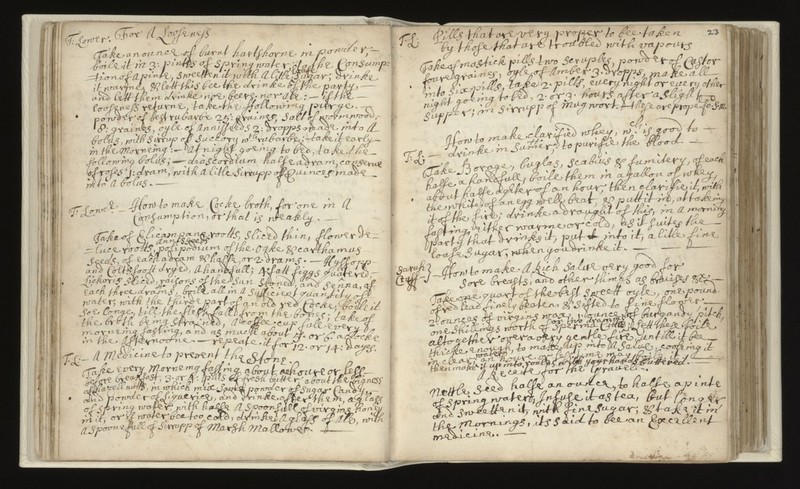 T: Lower. For A Looseness
Take an ounce of burnt hartshorne in powder,
boile it in 3: pintts of spring water, to the Consump
=tion of a pinte, sweetten it with A litle Sugar; drinke
it warme, & lett this bee the drinke of the party,
and lett them drinke noe other; nor ale: – if the
loosseness returne, take the following purge.
powder of best rubarbe 25: graines, Salt of wormwood
8: graines, oyle of Anniseeds 2: dropps made into A
bolus, with sirrup of Succory wth Rubarbe; take it early
in the Morneing. – At night going to bed, take the
following bolus; – diascordium halfe a dram, conserve
of roses 1: dram, with A litle Sirrupp of Quinces made
into A bolus. –
T: Lower – How to make Cocke broth, for one in A
Consumption, or that is weakly. –
Take of Elicampane roots, Sliced thin, flower de=
=luce roots, polipodium of the Oake & carthamus
anniseeds
seeds, of each a dram & halfe or 2: drams. – Hyssopp
and Coltsfoott dryed, A handfull; A small figgs quatered
Lickoris Sliced, raisons of the Sun Stoned, and Senna, of
each three drams; boile all in a Sufficient quantity of
water, with the third part of an old red Cocke, boile it
soe longe, till the flesh fall from the bones; take of
the broth being strained, A Coffee cup full every
morneing fasting, and as much about 4: or 5: a Clocke
in the Afternoone. – repeate it for 12: or 14: days.
T: L – A Medicine to prevent the Stone. –
Take every Morneing fasting about an houre or less
before breakfast, 3: or 4: pills of fresh butter, about the bigness
of hazell nutts, in which putt powder of Sugar Candy,
and powder of Liquorice, and drinke after them, a glass
of spring water, with halfe A Spoonfull of virgins honey
in it, or if water bee too cold, drinke A glass of Ale, with
A Spoone full of Sirrupp of Marsh Mallowes. –
23
T: L Pills that are very proper to bee taken
by those that are troubled with vapours
Take of mastick pills two scruples, powder of Castor
foure graines, oyle of Amber 3: dropps, make all
into Six pills, take 2: pills, every night or every other
night going to bed, 2: or 3: hours after a Slight
Supper; in Sirrupp of Mugwort; – these are proper for
How to make Clarified whey, wch: is good to
T: L: – drinke in Sumer; to purifie the blood –
Take Borage, buglos, Scabius & fumitery, of each
halfe a handfull, boile them in a gallon of whey,
about halfe a qter of an hour; then clarifie it, with
the white of an egg well beat, & putt in, at takeing
it of the fire; drinke a draught of this, in a morning
fasting, either warme or cold, as it suites the
party that drinks it, putt into it, a litle fine
loafe Sugar, when you drinke it. –
Sarah
How to make A Rich Salve very good for
Sore breasts, and other things as bruises &c: –
Take one quart of the best Sweet oyle, one pound
of red lead finely beaten, & sifted to fine flower –
2 ounces of virgins wax, 2 ounces of burgandy pitch,
one Shillings worth of Sperma Citty; lett them boile
altogether over a very gentle fire, untill it bee
thicke enough, to make up into A Salve,
then make it up into rowles, with your hands buttered.
A Receite for the Gravell –
Nettle Seed halfe an ounce, to halfe a pinte
of spring water, Infuse it as tea, but longer
and sweetten it, with fine Sugar; & take it in
the Mornings, its Said to bee an Excellent
medicine. –